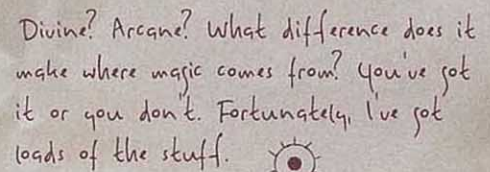 Divine? Arcane? What difference does it
make where magic comes from? You've got
it or you don't. Fortunately, I've got
loads of the stuff.